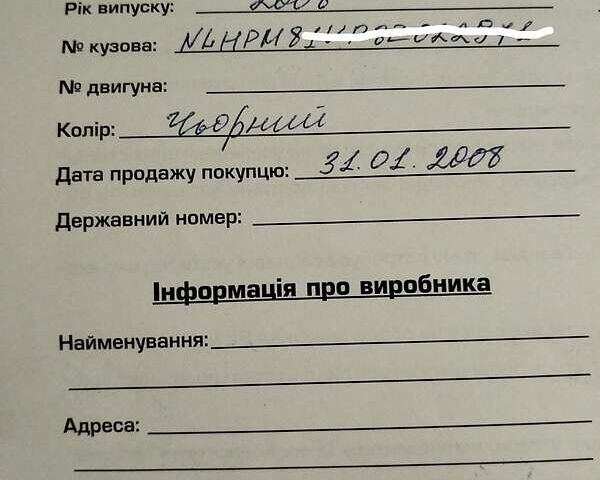 Рік випуску: 2008
№ кузова: NLHPM81
№ двигуна:
Колір: Чьорний
Дата продажу покупцю: 31.01.2008
Державний номер:
Інформація про виробника
Найменування:
Адреса: